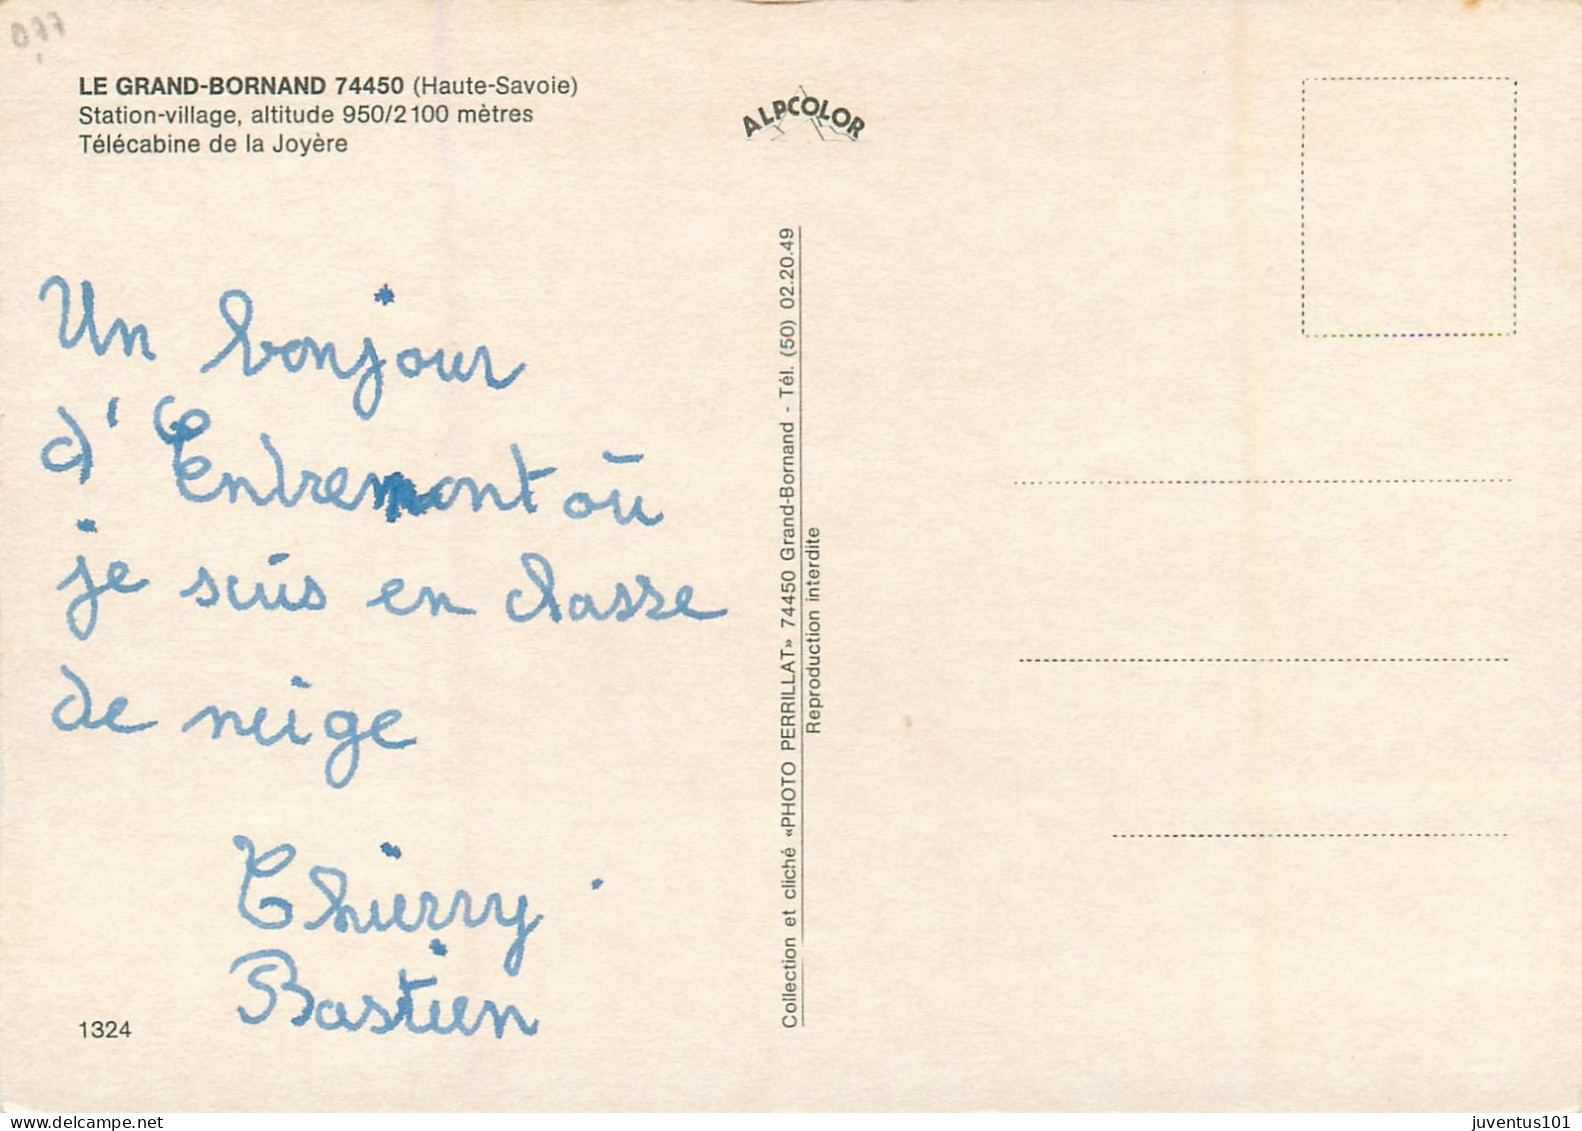 D77
LE GRAND-BORNAND 74450 (Haute-Savoie)
Station-village, altitude 950/2100 mètres
Télécabine de la Joyère
ALPCOLOR
Un bonjour
d'Entremont où
je suis en classe
de neige
Thierry
Bastien
1324
Collection et cliché «PHOTO PERRILLAT» 74450 Grand-Bornand - Tél. (50) 02.20.49
Reproduction interdite
juventus101